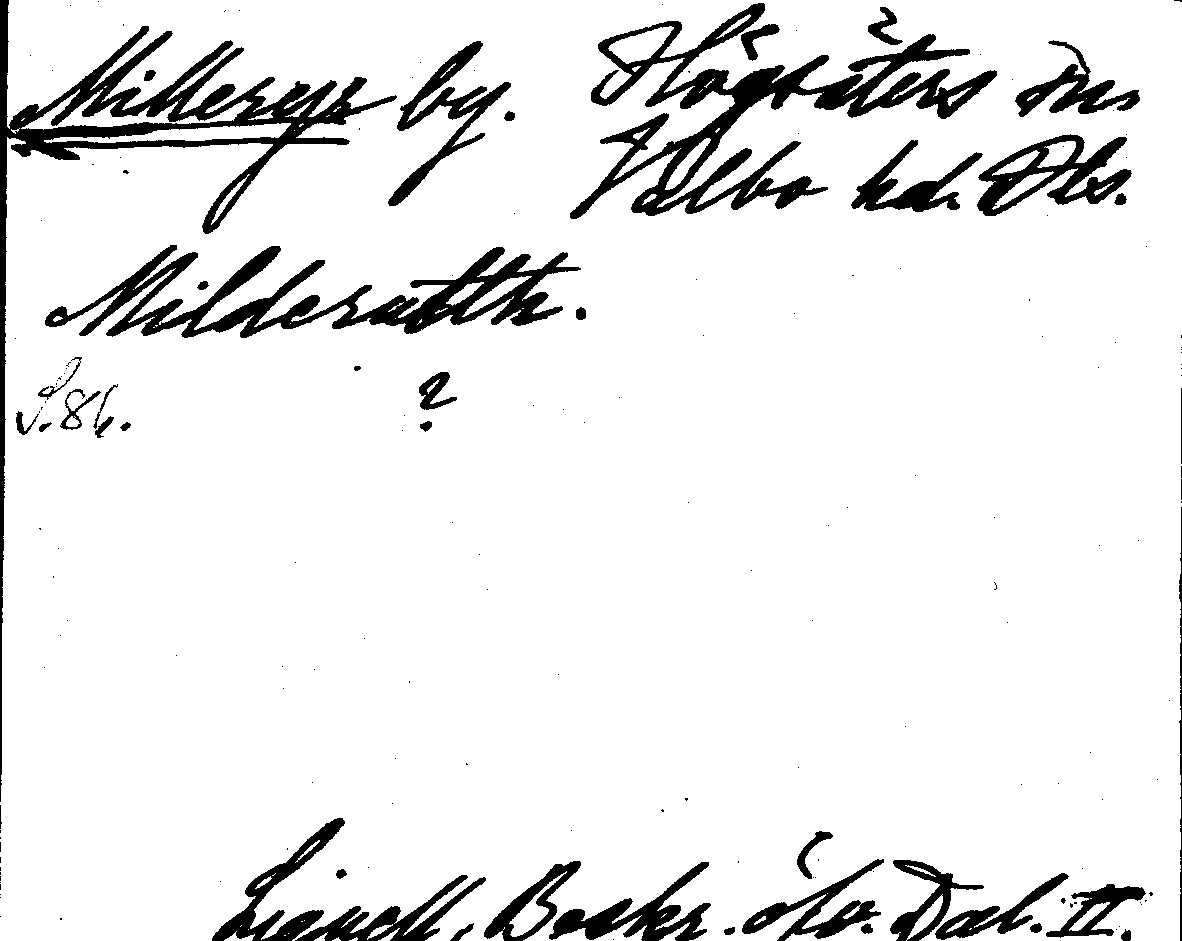 Milleryr by. Högsäters sn.
Valbo hd. Dls.
Milderudth.
S. 86. ?
Lignell, Beskr. öfv. Dal. II.